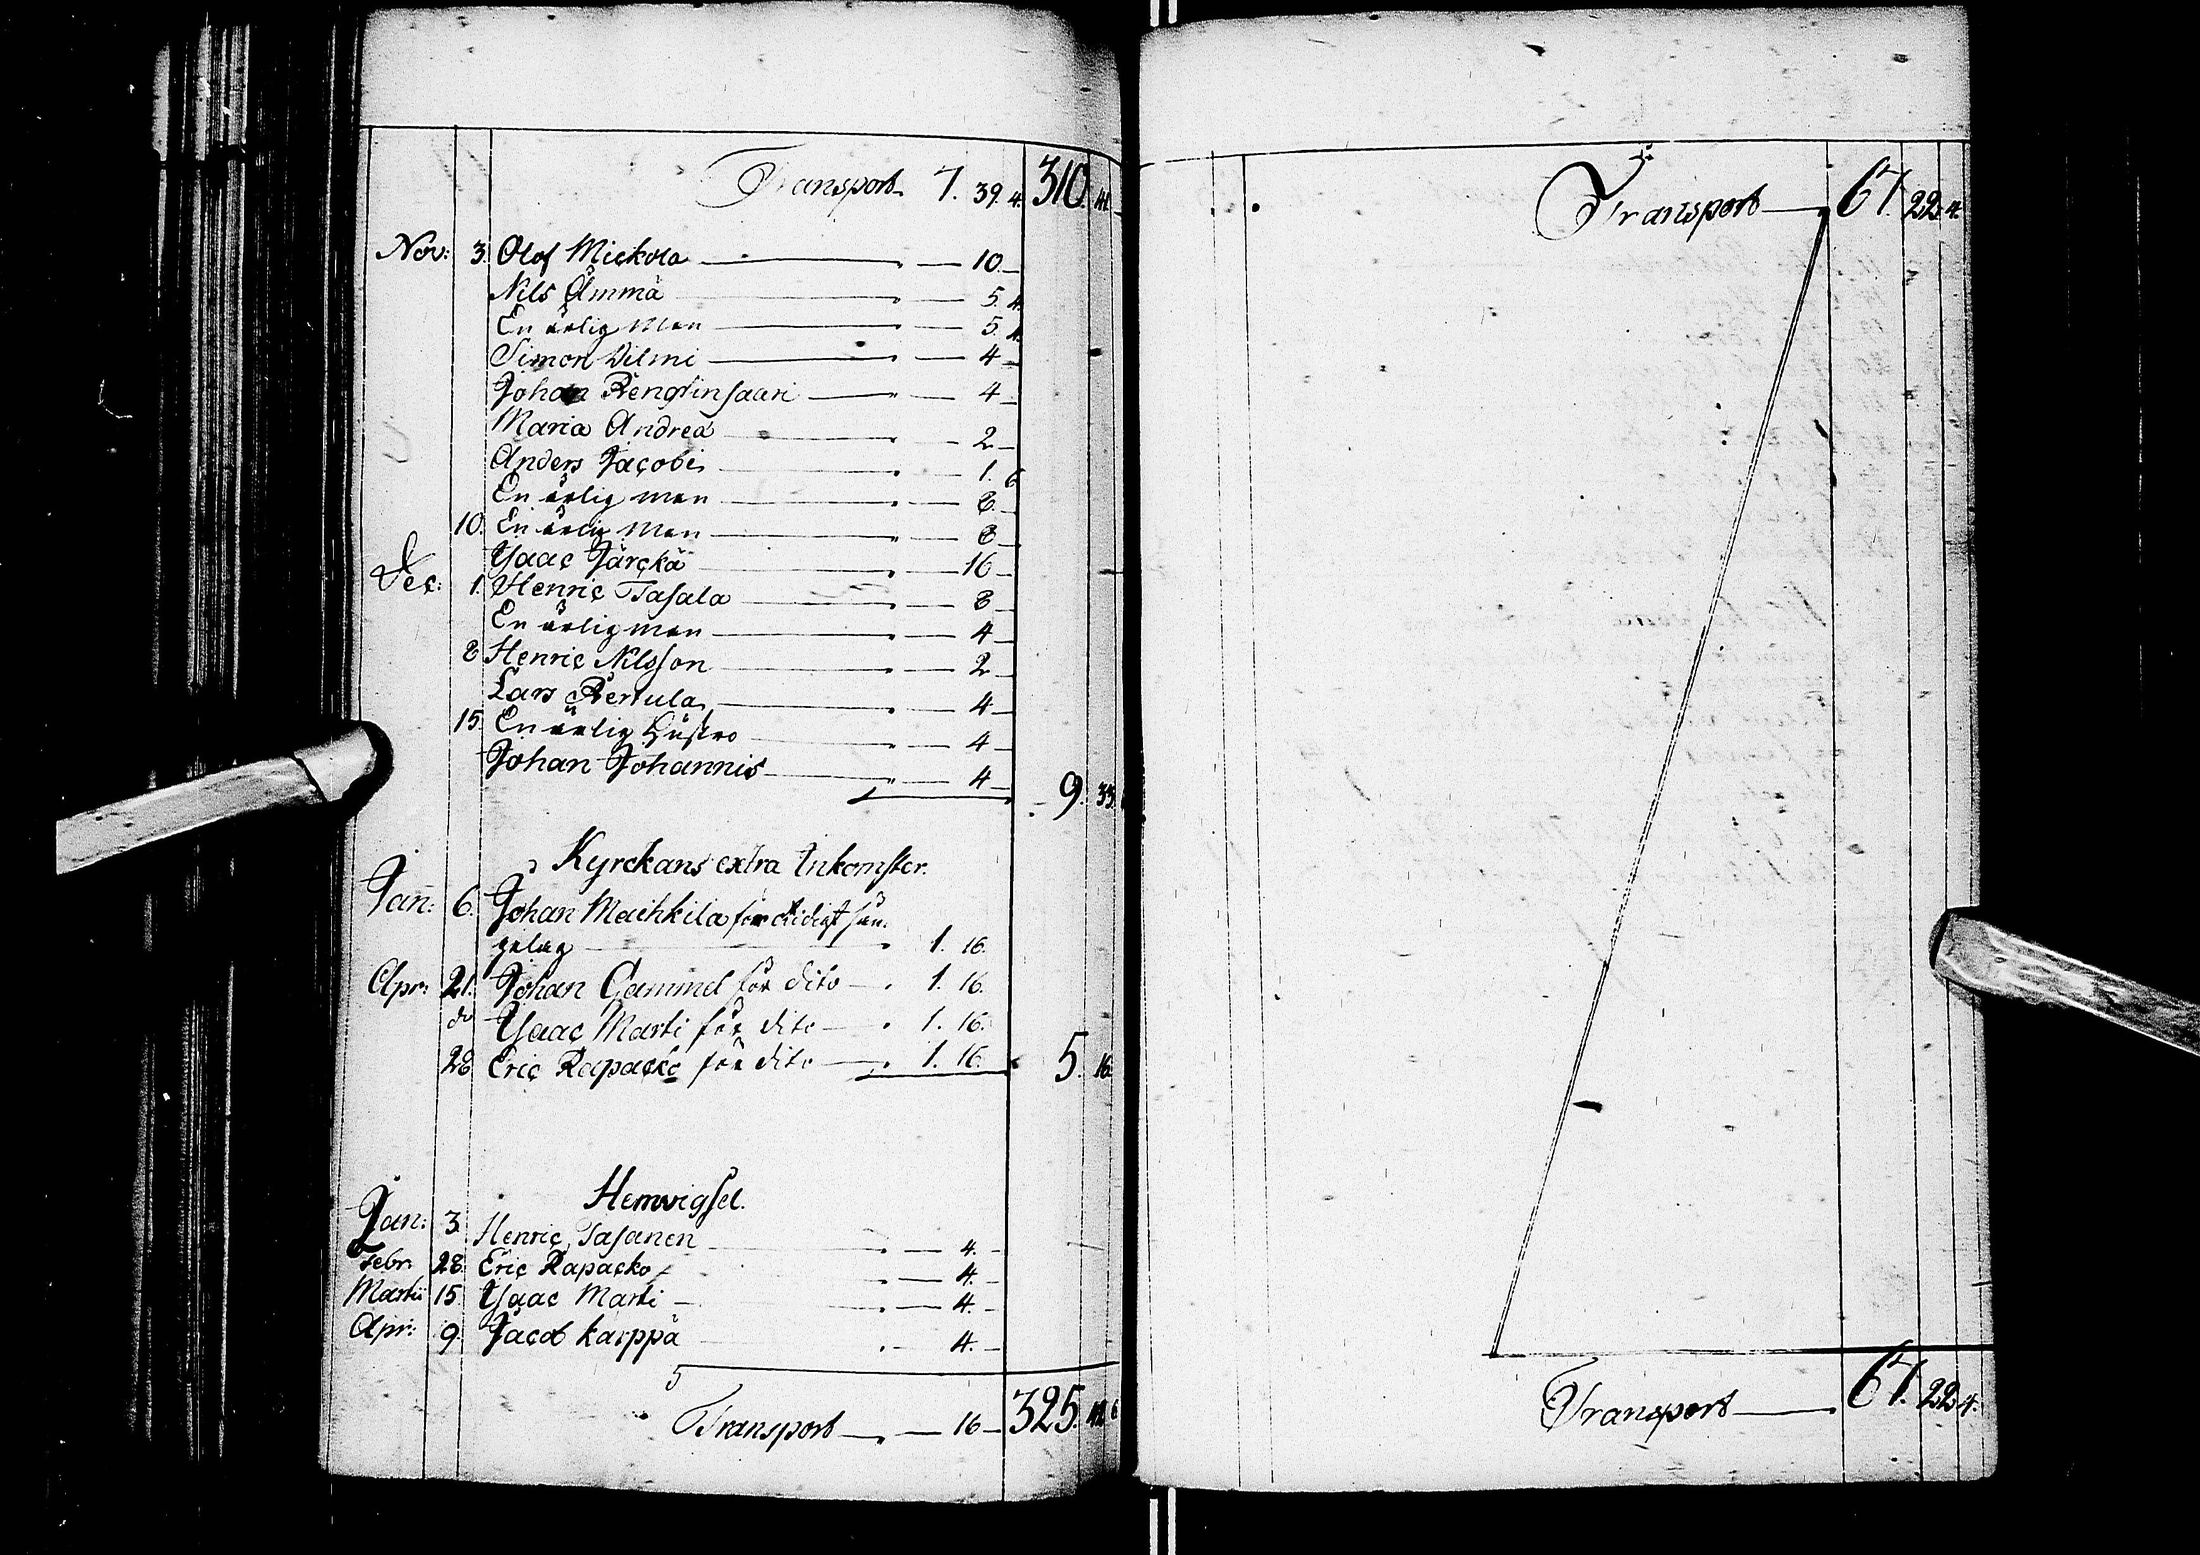 Transport 7. 39. 4. 310. 41.
Nov: 3. Olof Mickola — 10 —
Nils Ämmä — 5. 4.
En ärlig Man — 5. 4.
Simon Vilmi — 4 —
Johan Rengtinsaari — 4 —
Maria Andreä — 2 —
Anders Jacobi — 1. 6
En ärlig man — 8 —
10. En ärlig Man — 8 —
Ysaac Järckä — 16 —
Dec: 1. Henric Tasala — 8 —
En ärlig man — 4 —
8 Henric Nilsson — 2 —
Lars Pertula — 4 —
15. En ärlig Hustro — 4 —
Johan Johannis — 4 —
9. 33.
Kyrckans extra Inkomster.
Jan: 6. Johan Machkila för otidigt sän-
gelag — 1. 16.
Apr: 21. Johan Gammel för dito — 1. 16.
do Ysaac Marti för dito — 1. 16.
28 Eric Rapacko för dito — 1. 16. 5. 16
Hemvigsel.
Jan: 3. Henric Tasanen — 4. —
Febr: 28. Eric Rapacko — 4. —
Martii 15. Ysaac Marti — 4. —
Apr: 9. Jacob karppä — 4. —
Transport — 16 — 325. 42. 6
Transport — 67. 22. 4.
Transport — 67. 22. 4.